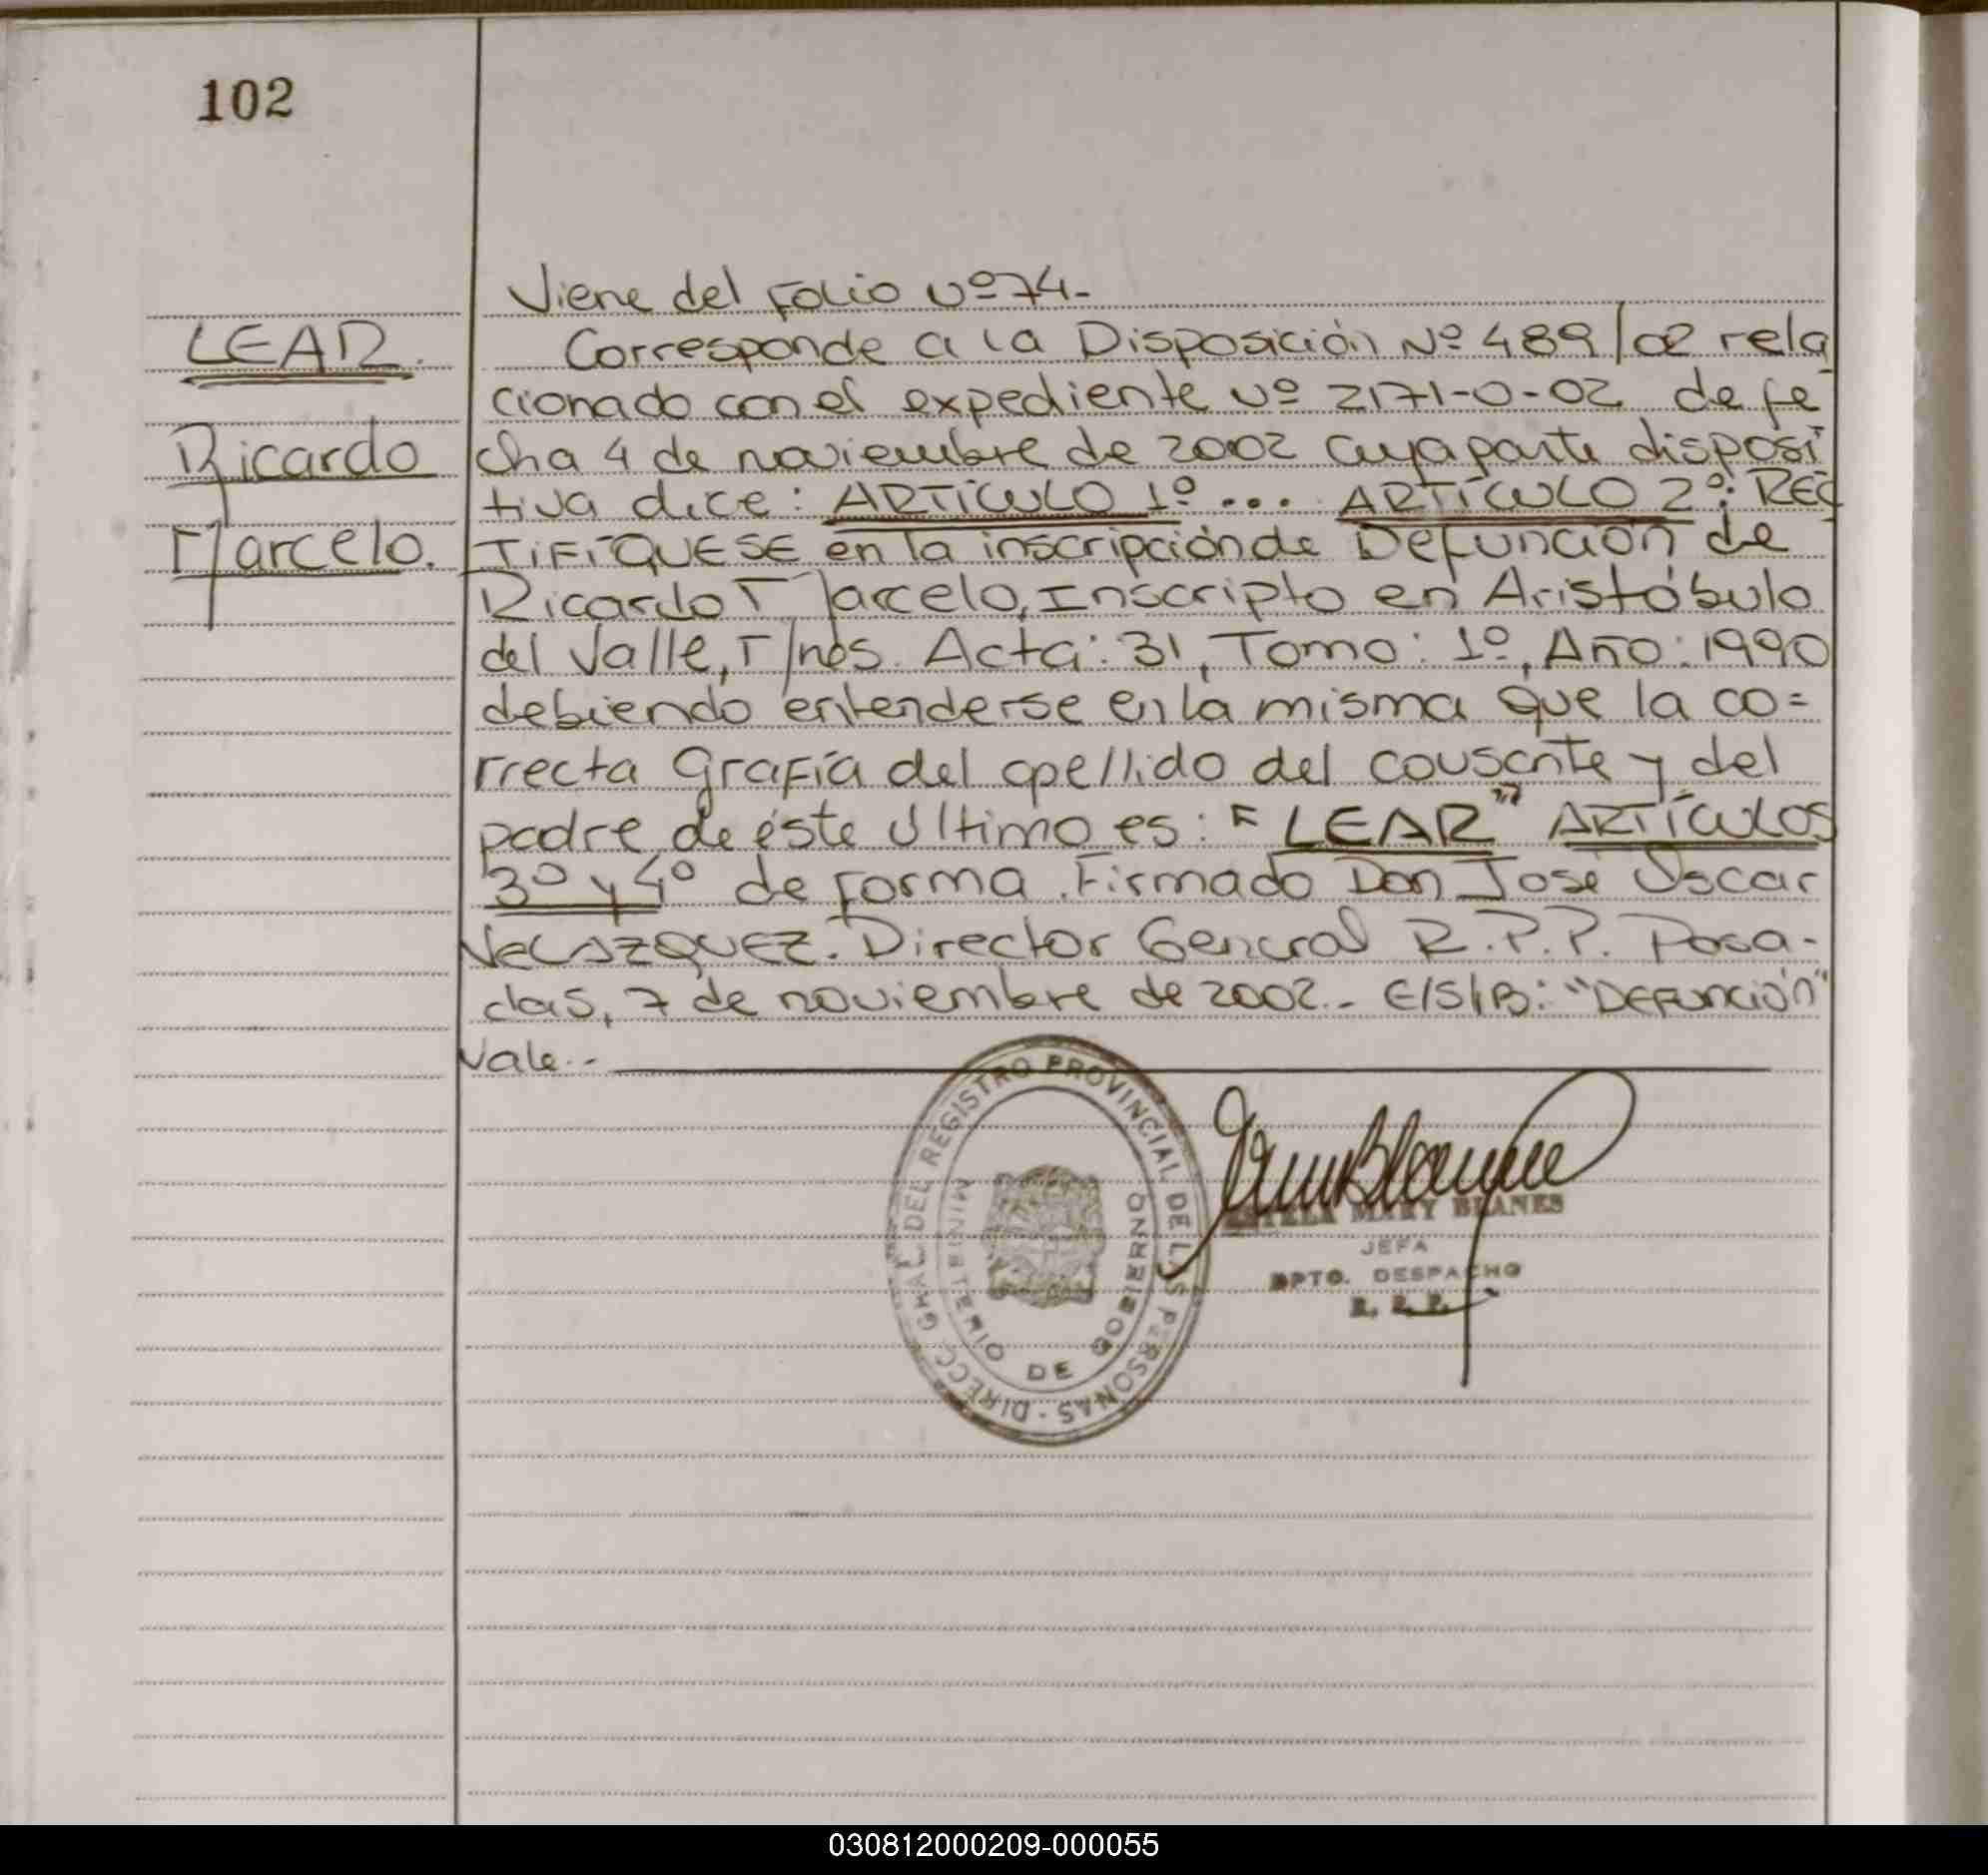 102
Viene del Folio Nº 74.-
LEAR.
Corresponde a la Disposición Nº 489/02 rela
cionado con el expediente Nº 2171-0-02 de fe
Ricardo
cha 4 de noviembre de 2002 cuya parte disposi
tiva dice: ARTÍCULO 1º ... ARTÍCULO 2º: REC
Marcelo.
TIFÍQUESE en la inscripción de Defunción de
Ricardo Marcelo, Inscripto en Aristóbulo
del Valle, Mnes. Acta: 31, Tomo: 1º, Año: 1990
debiendo entenderse en la misma que la co=
rrecta Grafía del apellido del causante y del
padre de éste Ultimo es: "LEAR" ARTÍCULOS
3º y 4º de forma. Firmado Don José Oscar
VELAZQUEZ. Director General R.P.P. Posa-
das, 7 de noviembre de 2002.- E/S/B: "DEFUNCIÓN"
Vale.-
DIRECC. GRAL. DEL REGISTRO PROVINCIAL DE LAS PERSONAS -
MINISTERIO DE GOBIERNO
ESTELA MARY BLANES
JEFA
DPTO. DESPACHO
R. P. P.
030812000209-000055